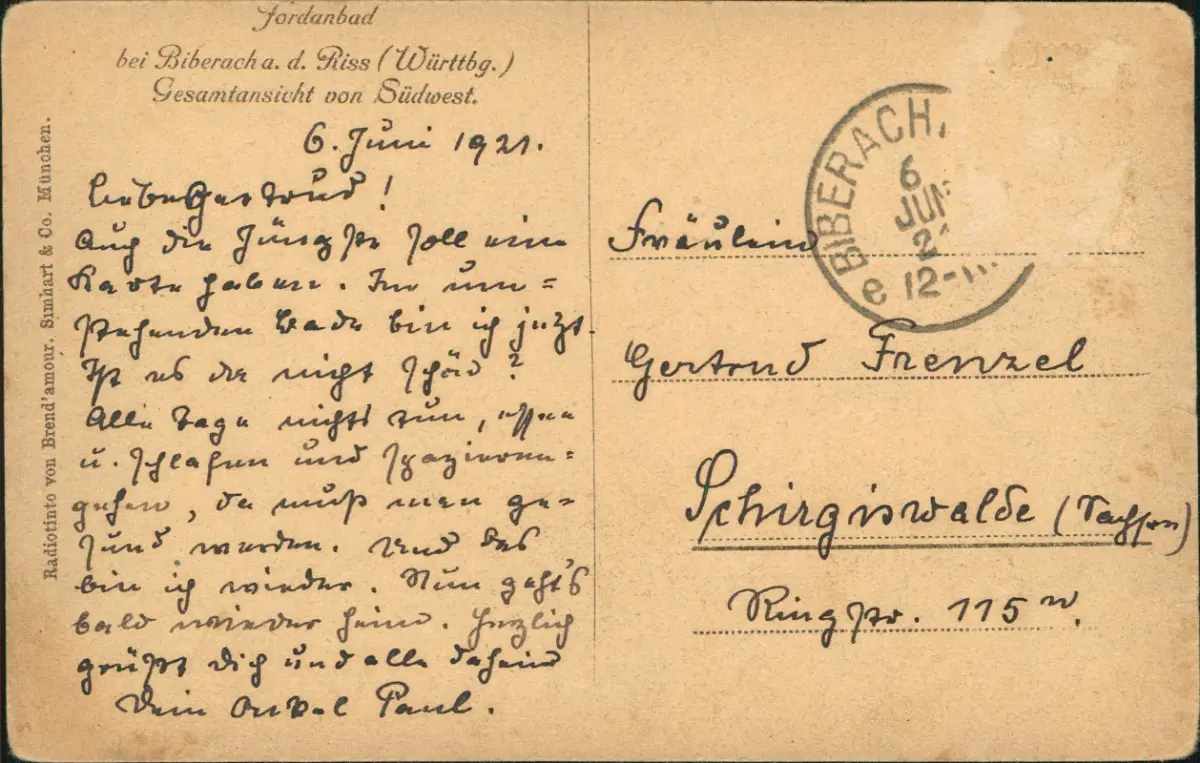 Jordanbad
bei Biberach a. d. Riss (Württbg.)
Gesamtansicht von Südwest.
Radiotinto von Brend'amour, Simhart & Co. München.
6. Juni 1921.
Liebe Gertrud!
Auch die Jüngste soll eine
Karte haben. Im um=
stehenden Bade bin ich jetzt.
Ist es da nicht schön?
Alle Tage nichts tun, essen
u. schlafen und spazieren=
gehen, da muß man ge=
sund werden. Und das
bin ich wieder. Nun geht's
bald wieder heim. Herzlich
grüßt Dich und alle daheim
Dein Onkel Paul.
BIBERACH,
6
JUN
2
12-
e
Fräulein
Gertrud Frenzel
Schirgiswalde (Sachsen)
Ringstr. 115